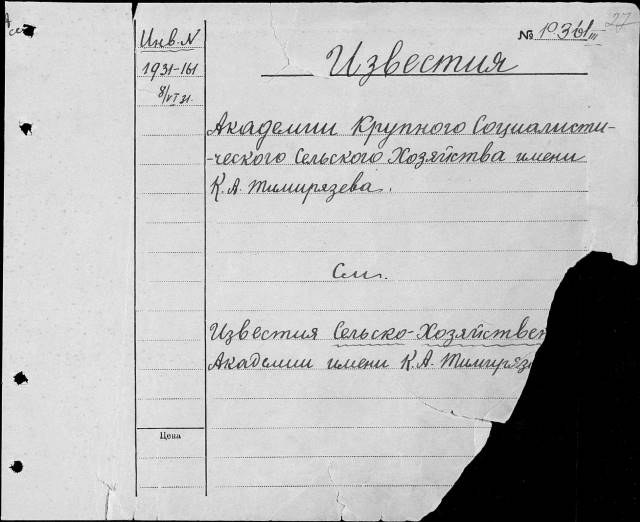 27
№ 10361 III
Инв. N
1931-161
8/VI 31.
Известия
Академии Крупного Социалисти-
-ческого Сельского Хозяйства имени
К. А. Тимирязева.
См.
Известия Сельско-Хозяйствен
Академии имени К. А. Тимирязе
Цена